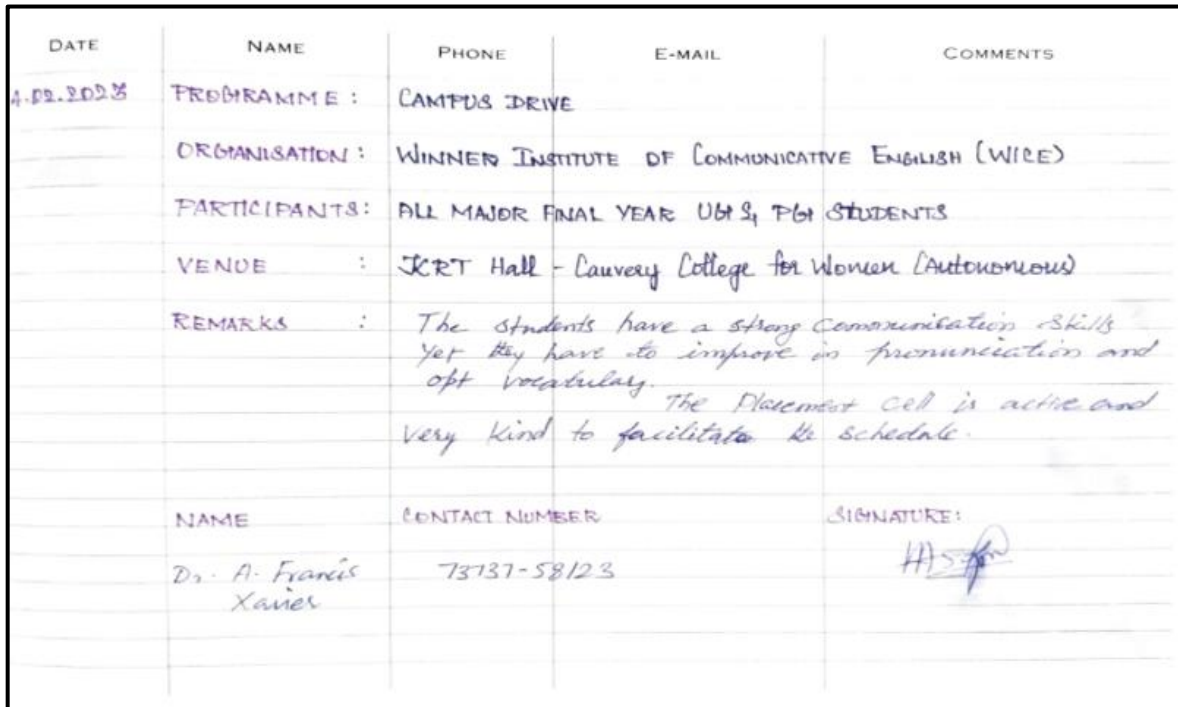 DATE NAME PHONE E-MAIL COMMENTS
4.02.2023 PROGRAMME : CAMPUS DRIVE
ORGANISATION : WINNER INSTITUTE OF COMMUNICATIVE ENGLISH (WICE)
PARTICIPANTS : ALL MAJOR FINAL YEAR UG & PG STUDENTS
VENUE : JKRT Hall - Cauvery College for Women (Autonomous)
REMARKS : The students have a strong Communication skills
Yet they have to improve in pronunciation and
opt vocabulary.
The Placement Cell is active and
very kind to facilitate the schedule.
NAME CONTACT NUMBER SIGNATURE:
Dr. A. Francis 73737-58123
Xavier